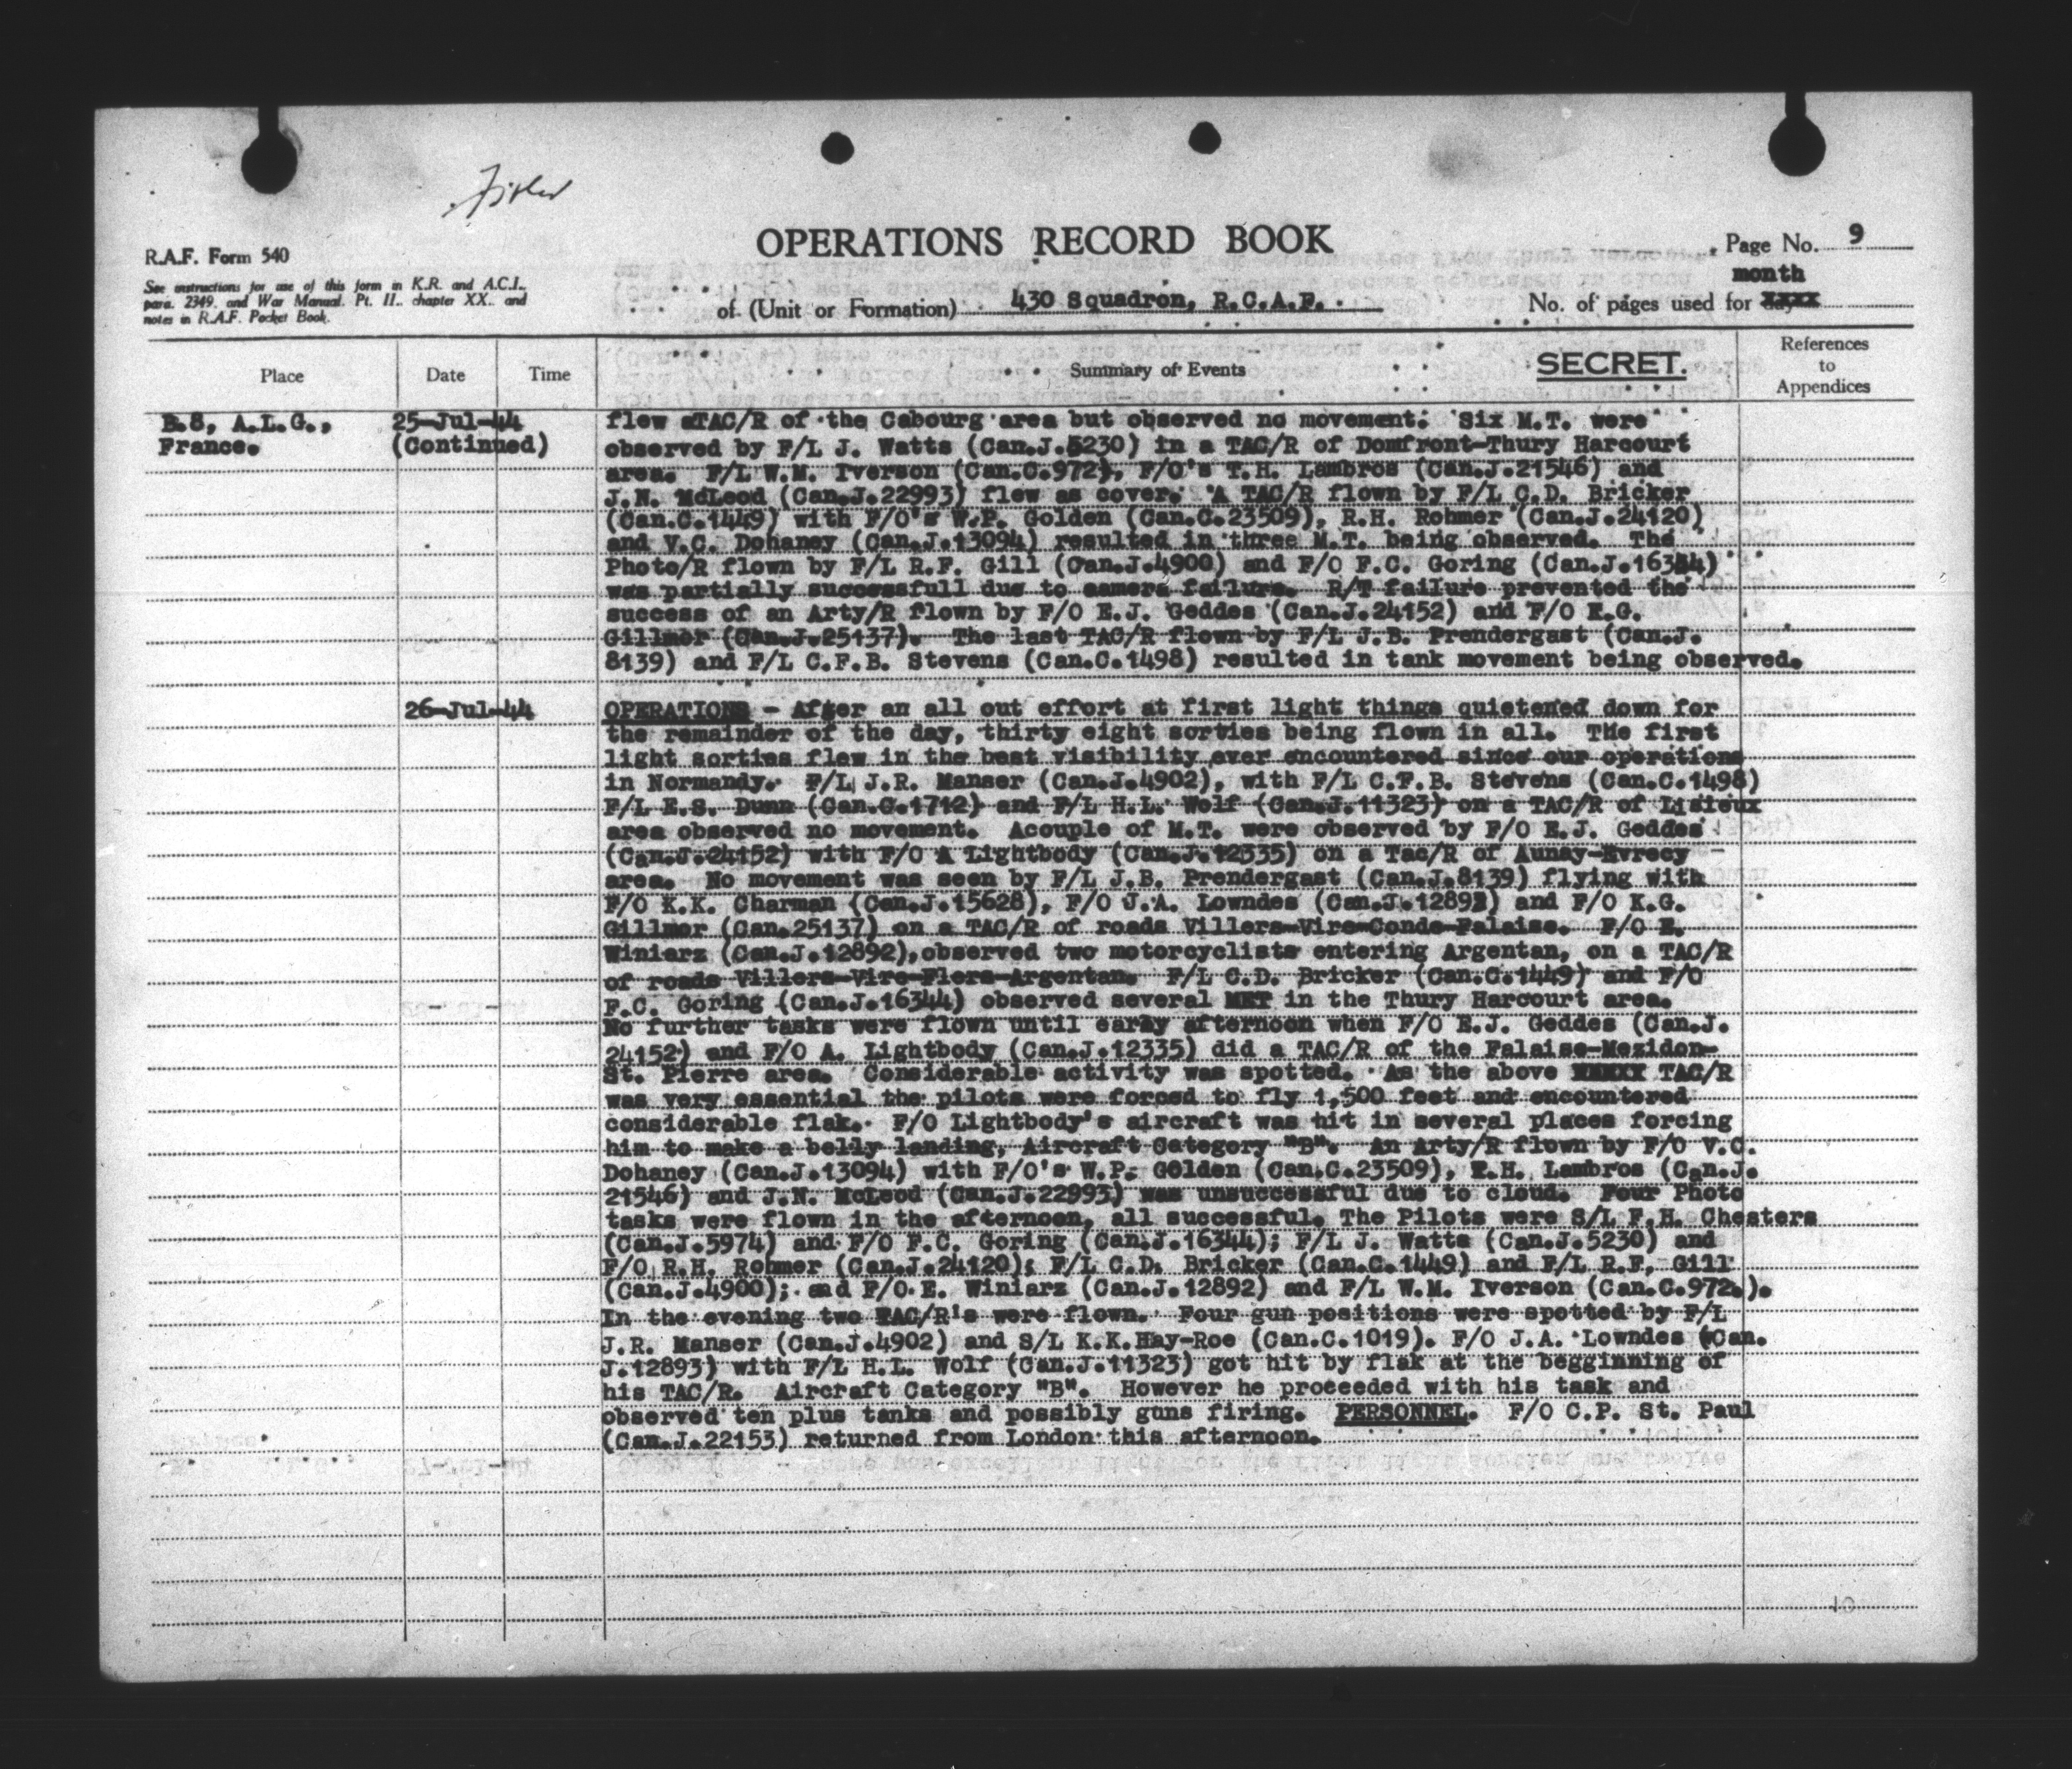 R.A.F. Form 540
See instructions for use of this form in K.R. and A.C.I.,
para. 2349, and War Manual, Pt. II., chapter XX., and
notes in R.A.F. Pocket Book.
OPERATIONS RECORD BOOK
of (Unit or Formation) 430 Squadron, R.C.A.F.
Page No. 9
month
No. of pages used for day
Place Date Time Summary of Events SECRET. References to Appendices
B.8, A.L.G., 25-Jul-44 flew aTAC/R of the Cabourg area but observed no movement. Six M.T. were
France. (Continued) observed by F/L J. Watts (Can.J.5230) in a TAC/R of Domfront-Thury Harcourt
area. F/L W.M. Iverson (Can.C.972), F/O's T.H. Lambros (Can.J.21546) and
J.N. McLeod (Can.J.22993) flew as cover. A TAC/R flown by F/L C.D. Bricker
(Can.C.1449) with F/O's W.P. Golden (Can.C.23509), R.H. Rohmer (Can.J.24120)
and V.C. Dohaney (Can.J.13094) resulted in three M.T. being observed. The
Photo/R flown by F/L R.F. Gill (Can.J.4900) and F/O F.C. Goring (Can.J.16344)
was partially successfull due to camera failure. R/T failure prevented the
success of an Arty/R flown by F/O E.J. Geddes (Can.J.24152) and F/O K.G.
Gillmor (Can.J.25137). The last TAC/R flown by F/L J.B. Prendergast (Can.J.
8139) and F/L C.F.B. Stevens (Can.C.1498) resulted in tank movement being observed.
26-Jul-44 OPERATIONS - After an all out effort at first light things quietened down for
the remainder of the day, thirty eight sorties being flown in all. The first
light sorties flew in the best visibility ever encountered since our operations
in Normandy. F/L J.R. Manser (Can.J.4902), with F/L C.F.B. Stevens (Can.C.1498)
F/L E.S. Dunn (Can.C.1712) and F/L H.L. Wolf (Can.J.11323) on a TAC/R of Lisieux
area observed no movement. Acouple of M.T. were observed by F/O E.J. Geddes
(Can.J.24152) with F/O A Lightbody (Can.J.12335) on a Tac/R of Aunay-Evrecy
area. No movement was seen by F/L J.B. Prendergast (Can.J.8139) flying with
F/O K.K. Charman (Can.J.15628), F/O J.A. Lowndes (Can.J.12893) and F/O K.G.
Gillmor (Can.25137) on a TAC/R of roads Villers-Vire-Conde-Falaise. F/O E.
Winiarz (Can.J.12892),observed two motorcyclists entering Argentan, on a TAC/R
of roads Villers-Vire-Flers-Argentan. F/L C.D. Bricker (Can.C.1449) and F/O
F.C. Goring (Can.J.16344) observed several MET in the Thury Harcourt area.
No further tasks were flown until early afternoon when F/O E.J. Geddes (Can.J.
24152) and F/O A. Lightbody (Can.J.12335) did a TAC/R of the Falaise-Mezidon-
St. Pierre area. Considerable activity was spotted. As the above TAC/R
was very essential the pilots were forced to fly 1,500 feet and encountered
considerable flak. F/O Lightbody's aircraft was hit in several places forcing
him to make a belly landing, Aircraft Category "B". An Arty/R flown by F/O V.C.
Dohaney (Can.J.13094) with F/O's W.P. Golden (Can.C.23509), T.H. Lambros (Can.J.
21546) and J.N. McLeod (Can.J.22993) was unsuccessful due to cloud. Four Photo
tasks were flown in the afternoon, all successful. The Pilots were S/L F.H. Chesters
(Can.J.5974) and F/O F.C. Goring (Can.J.16344); F/L J. Watts (Can.J.5230) and
F/O R.H. Rohmer (Can.J.24120); F/L C.D. Bricker (Can.C.1449) and F/L R.F. Gill
(Can.J.4900); and F/O E. Winiarz (Can.J.12892) and F/L W.M. Iverson (Can.C.972.).
In the evening two TAC/R's were flown. Four gun positions were spotted by F/L
J.R. Manser (Can.J.4902) and S/L K.K.Hay-Roe (Can.C.1019). F/O J.A. Lowndes (Can.
J.12893) with F/L H.L. Wolf (Can.J.11323) got hit by flak at the begginning of
his TAC/R. Aircraft Category "B". However he proceeded with his task and
observed ten plus tanks and possibly guns firing. PERSONNEL. F/O C.P. St. Paul
(Can.J.22153) returned from London this afternoon.